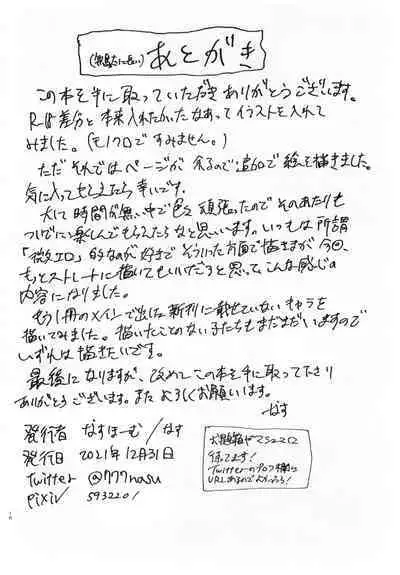 (無駄に長い) あとがき
この本を手に取っていただき ありがとうございます。
R-18差分と 本来入れたかったなあってイラストを入れて
みました。(モノクロで すみません。)
ただ それではページが 余るので追加で絵を描きました。
気に入ってもらえたら幸いです。
大して時間が無い中で色々 頑張ったので そのあたりも
ついでに楽しんでもらえたらなと思います。いつもは所謂
「微エロ」的なのが好きで そういった方面で描きますが 今回、
もっとストレートに描いてもいいだろと思って、こんな感じの
内容になりました。
もう1冊のメインで出した 新刊に載せていないキャラを
描いてみました。描いたことのない子たちもまだまだいますので
いずれは描きたいです。
最後になりますが、改めて この本を手に取って下さり
ありがとうございます。また よろしくお願いします。
なす
発行者 なすほーむ/なす
発行日 2021年12月31日
Twitter @777nasu
pixiv 5932201
お題箱や
待ってます!
Twitterのプロフ欄に
URLあるのでよかったら!